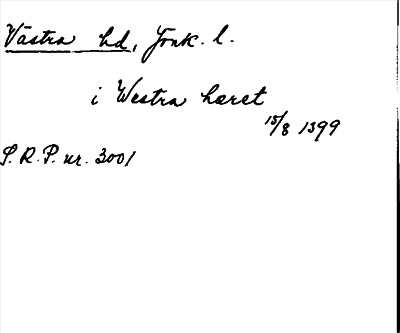 Västra hd, Jönk. l.
i Westra hæret
15/8 1399
S.R.P. nr. 3001